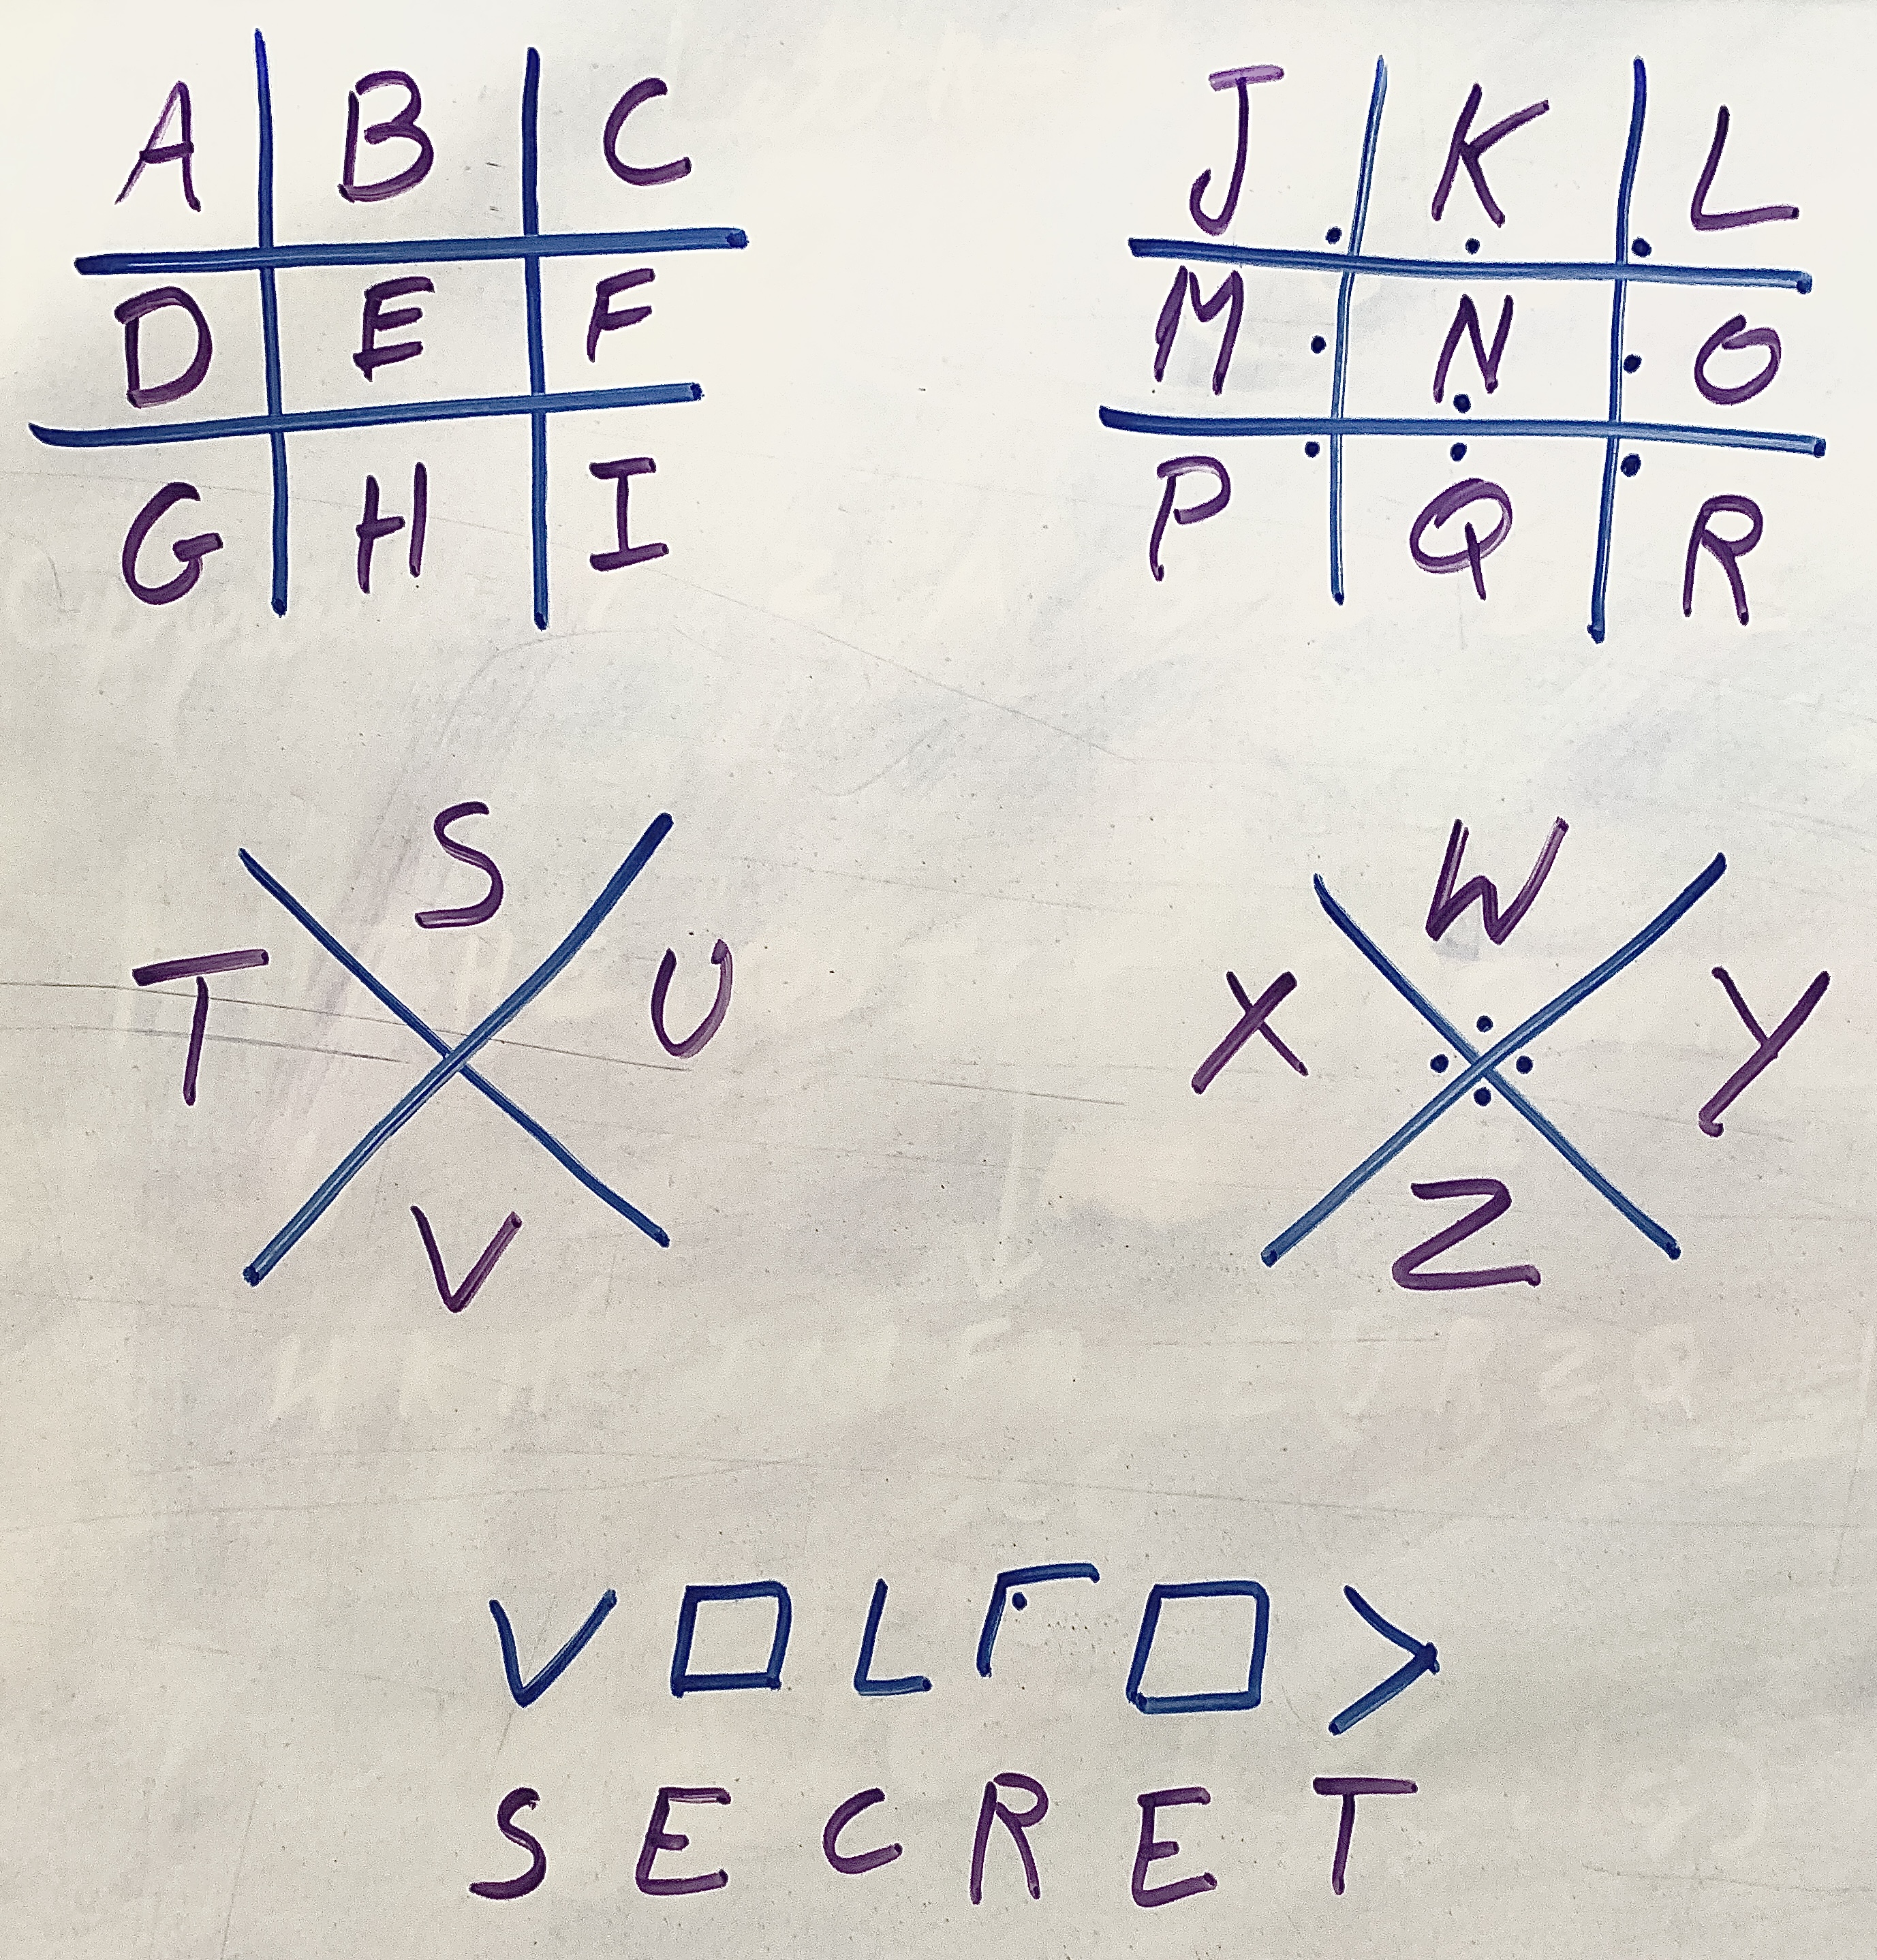 A B C
D E F
G H I
J K L
M N O
P Q R
S
T U
V
W
X Y
Z
SECRET